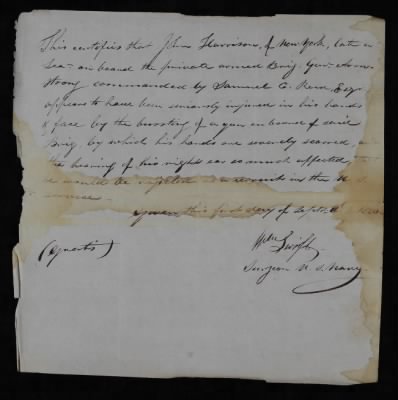 This certifies that John Harrison, of New York, late a
Sea- on board the private armed Brig Genl. Arm-
strong commanded by Samuel C. Reid Esq.
appears to have been seriously injured in his hands
& face by the bursting of a gun on board of said
Brig by which his hands are severely scarred, and
the hearing of his right ear so much affected
he would be rejected as a recruit in the U. S.
service -
Given this first day of Sept.
(Quartis)
Wm Swift
Surgeon U. S. Navy